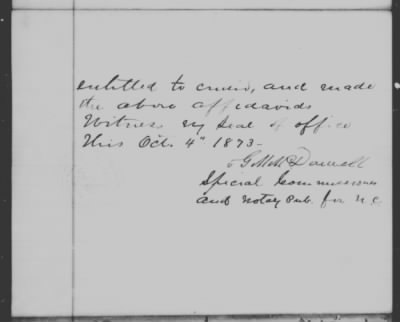 entitled to credit, and made
the above affidavids
Witness my Seal of office
This Oct. 4" 1873-
G McDowell
Special Commissioner
and Notary Pub. for N.C.